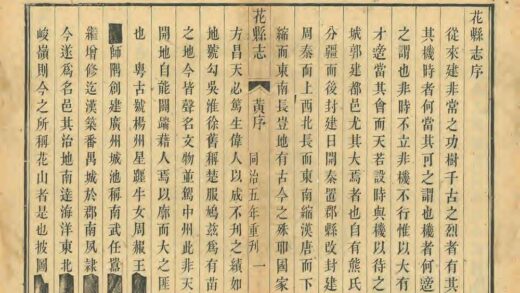 花縣志序
從來建非常之功樹千古之烈者有其
其機時者何當其可之謂也機者何適
之謂也非時不立非機不行惟以大有
才適當其會而天若設時與機以待之
城郭建都邑尤其大焉者也自有熊氏
分疆而後封建日開秦置郡縣改封建
周秦而上西北長而東南縮漢唐而下
縮而東南長豈地有古今之殊耶國家
花縣志 黃序 同治五年重刊 一
方昌天必篤生偉人以成不刊之績如
地號勾吳淮徐舊稱楚服鳩茲爲有苗
之地今皆聲名文物並駕中州此非天
開地自能闢藉人焉以廓而大之匪
也 粤古號楊州星躔牛女周赧王
師隅創建廣州城池稱南武任囂
繼增修迄漢築番禺城於郡南夙隸
今遂爲名邑其治地南達海洋東北
峻嶺則今之所稱花山者是也披圖